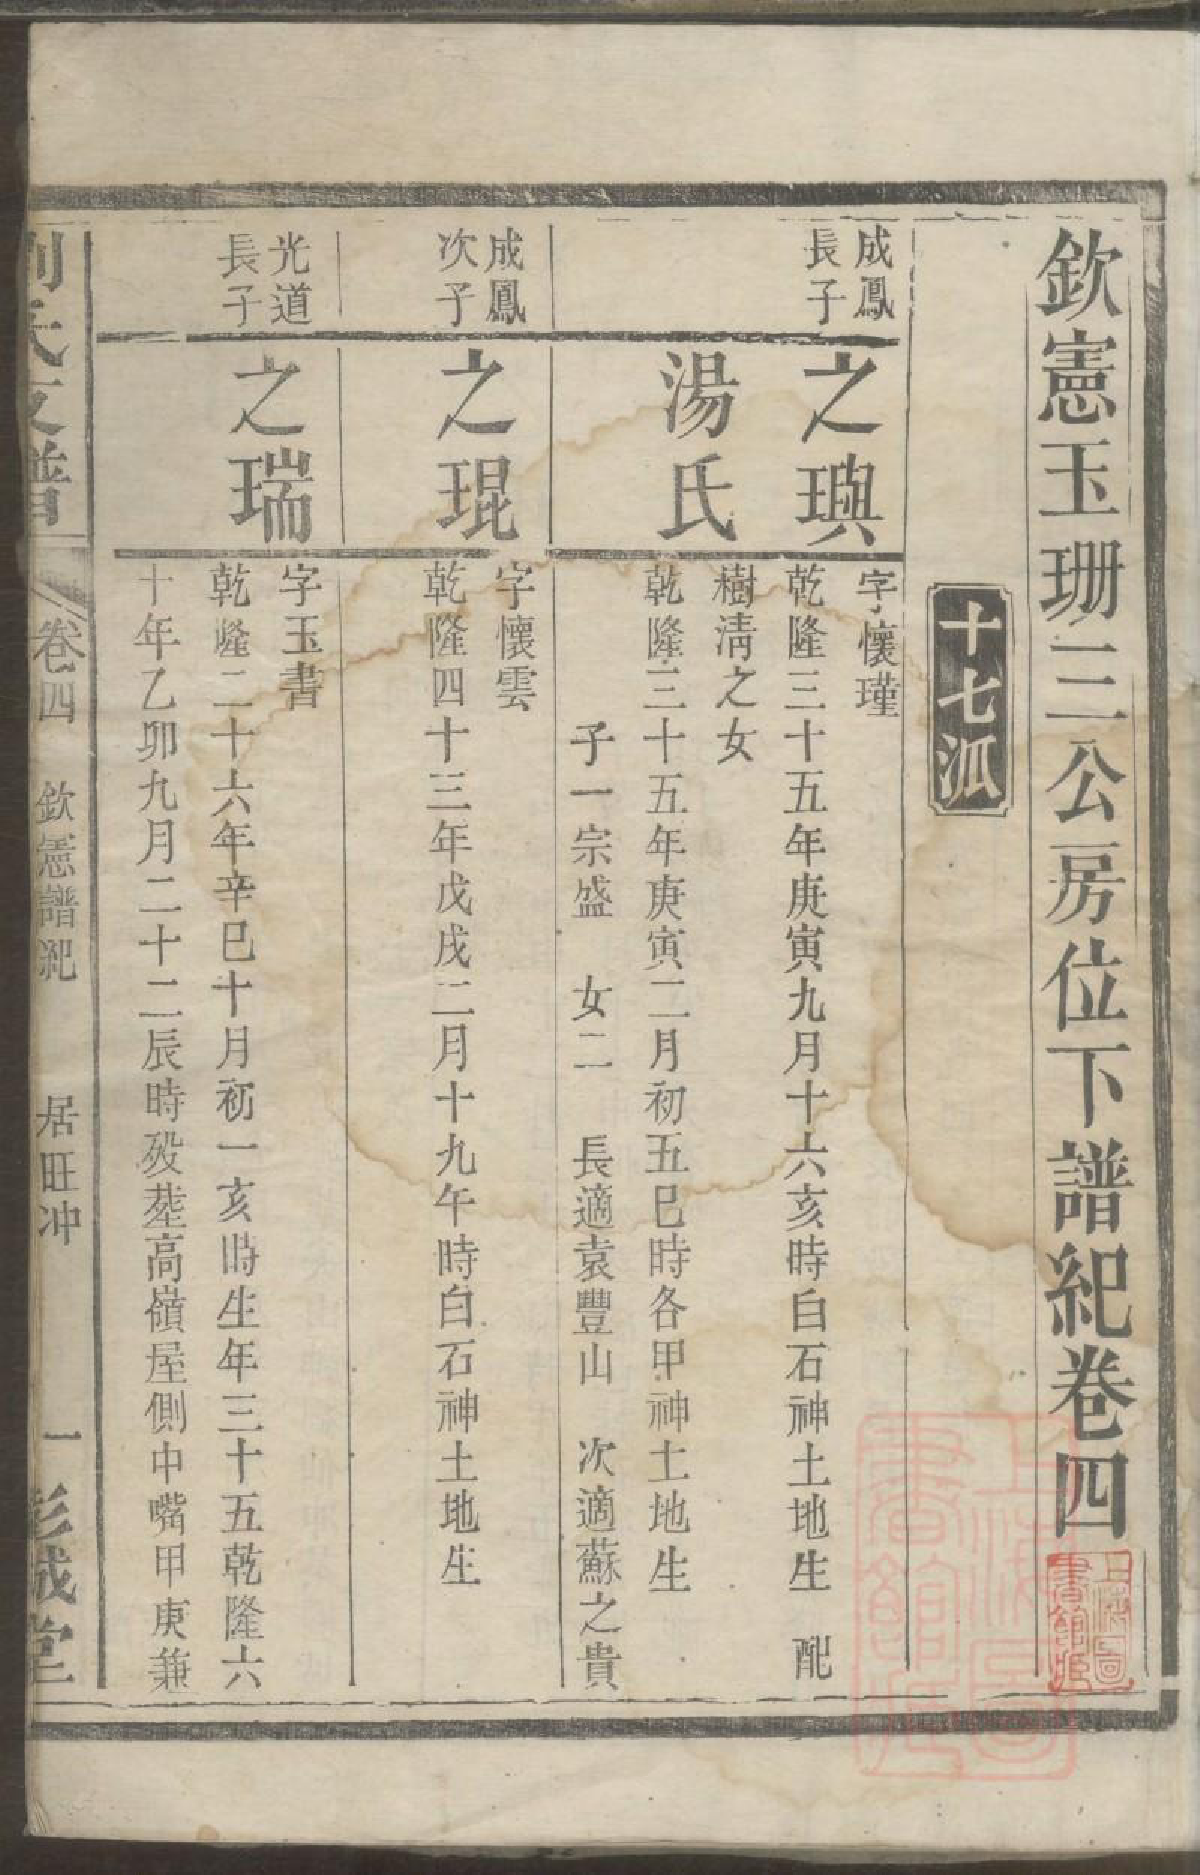 欽憲玉珊三公房位下譜紀卷四
十七派
成鳳
長子
之璵
字懷瑾
乾隆三十五年庚寅九月十六亥時白石神土地生　配
樹淸之女
湯氏
乾隆三十五年庚寅二月初五巳時各甲神土地生
子一宗盛　女二　長適袁豐山　次適蘇之貴
成鳳
次子
之琨
字懷雲
乾隆四十三年戊戌二月十九午時白石神土地生
光道
長子
之瑞
字玉書
乾隆二十六年辛巳十月初一亥時生年三十五乾隆六
十年乙卯九月二十二辰時歿塟高嶺屋側中嘴甲庚兼
劉氏支譜　卷四　欽憲譜紀　居旺冲　一　彭城堂
上海圖書館藏
上海圖書館藏